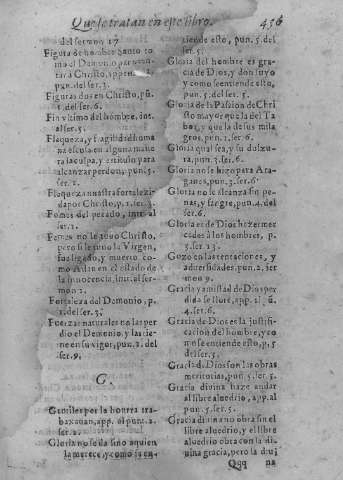 Que se tratan en este libro. 456
del sermon 17
Figura de hombre santo to
mo el Demonio para ten-
tar a Christo, appen.
ser. 2.
Figuras dos en Christo, pū.
1. del ser. 6.
Fin vltimo del hombre, int.
al ser. 5.
Flaqueza, y fragilidad huma
na escusa en alguna mane
ra la culpa, y es titulo para
alcançar perdon, pun. 5.
ser. 2.
Flaqueza nuestra fortaleci-
da por Christo, p. 1. ser. 3.
Fomes del pecado, int. al
ser. 1.
Fomes no le tuvo Christo,
pero si le tuvo la Virgen,
fue ligado, y muerto co-
mo Adan en el estado de
la innocencia, int. al ser-
mon 2.
Fortaleza del Demonio, p.
1. del ser. 3.
Fuerzas naturales no las per
dio el Demonio y las tie-
ne en su vigor, pun. 2. del
ser. 9.
G.
Gentiles por la honrra tra-
baxauan, app. al punt. 2.
ser. 2.
Gloria no se da sino a quien
la merece, y como se en-
tiende esto, pun. 5. del
ser. 5.
Gloria del hombre es gra-
cia de Dios, y don suyo
y como se entiende esto,
pun. 5. del ser. 5.
Gloria de la Passion de Chri
sto mayor que la del Ta
bor, y que la de sus mila
gros, pun. 2. ser. 6.
Gloria qual sea, y su dolzu-
ra, pun. 5. ser. 6.
Gloria no se hizo para Ara-
ganes, pun. 3. ser. 6.
Gloria no se alcanza sin pe-
nas, y sangre, pun. 4. del
ser. 6.
Gloria es de Dios hazer mer
cedes a los hombres, p.
5. ser. 13.
Gozo en las tentaciones, y
aduersidades, pun. 2. ser
mon 9.
Gracia y amistad de Dios per
dida se llore, app. al pū.
4. ser. 6.
Gracia de Dios es la justifi-
cacion del hombre, y co
mo se entiende esto, p. 5
del ser. 5.
Gracia de Dios son las obras
meritorias, pun. 5. ser. 5.
Gracia divina haze andar
al libre aluedrio, app. al
pun. 5. ser. 5.
Gracia diuina no obra sin el
libre aluedrio, y el libre
aluedrio obra con la di-
uina gracia, pero la diui
Qqq na